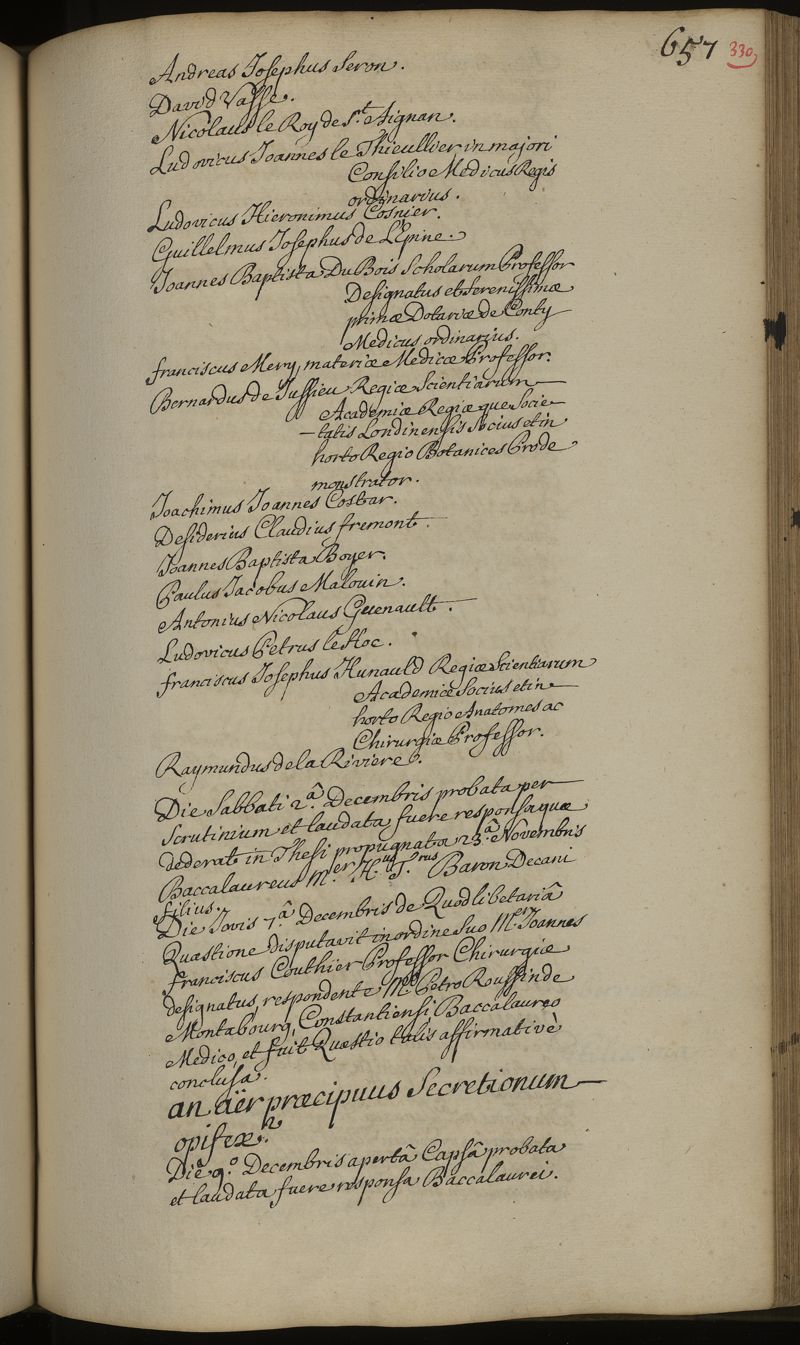 657 330
Andreas Josephus Seron.
David Vasse.
Nicolaus le Roy de S.t Aignan.
Ludovicus Joannes le Thieullier in majori
Consilio Medicus Regis
ordinarius.
Ludovicus Hieronimus Cosnier.
Guillelmus Josephus de L'Epine.
Joannes Baptista Du Bois Scholarum Professor
Designatus et Serenissimæ
primæ Dotariæ de Conty
Medicus ordinarius.
franciscus Mery, materiæ Medicæ Professor.
Bernardus de Jussieu Regiæ Scientiarum
Academiæ Regiæque Socie-
-tatis Londinensis Socius et in
horto Regio Botanices Prode
monstrator.
Joachimus Joannes Costar.
Desiderius Claudius fremont.
Joannes Baptista Boyer.
Paulus Jacobus Malouin.
Antonius Nicolaus Guenault.
Ludovicus Petrus le Hoc.
franciscus Josephus Hunauld Regiæ Scientiarum
Academiæ Socius et in
horto Regio Anatomes ac
Chirurgiæ Professor.
Raymundus de la Riviere.
Die Sabbati 2.â Decembris probata per
Scrutinium et laudata fuere responsa quæ
dederat in Thesi propugnata 23.â Novembris
Baccalaureus M.er H.us T.rius Baron Decani
filius.
Die Jovis 7.â Decembris de Quodlibetariâ
Quæstione disputavit in ordine suo M.er Joannes
franciscus Couthier Professor Chirurgiæ
designatus, respondente M.ro Petro Roussin de
Montabourg, Constantiensi Baccalaureo
Medico, et fuit Quæstio talis affirmativè
conclusa.
an aër præcipuus Secretionum
opifex?
Die 9.º Decembris apertâ Capsâ probata
et laudata fuere responsa Baccalaurei.